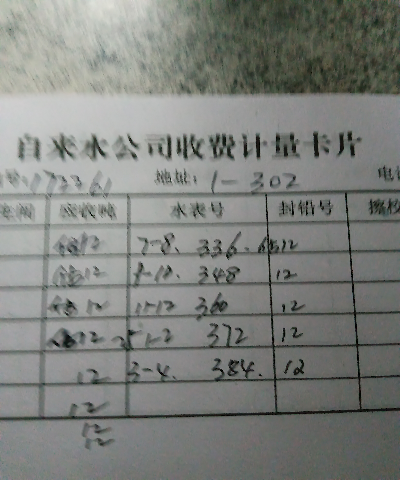 自来水公司收费计量卡片
号:172261 地址: 1-302 电话
应收吨 水表号 封铅号
12 7-8. 336. 12
12 9-10. 348 12
12 11-12 360 12
12 25 1-2 372 12
12 3-4. 384. 12
12
12
12